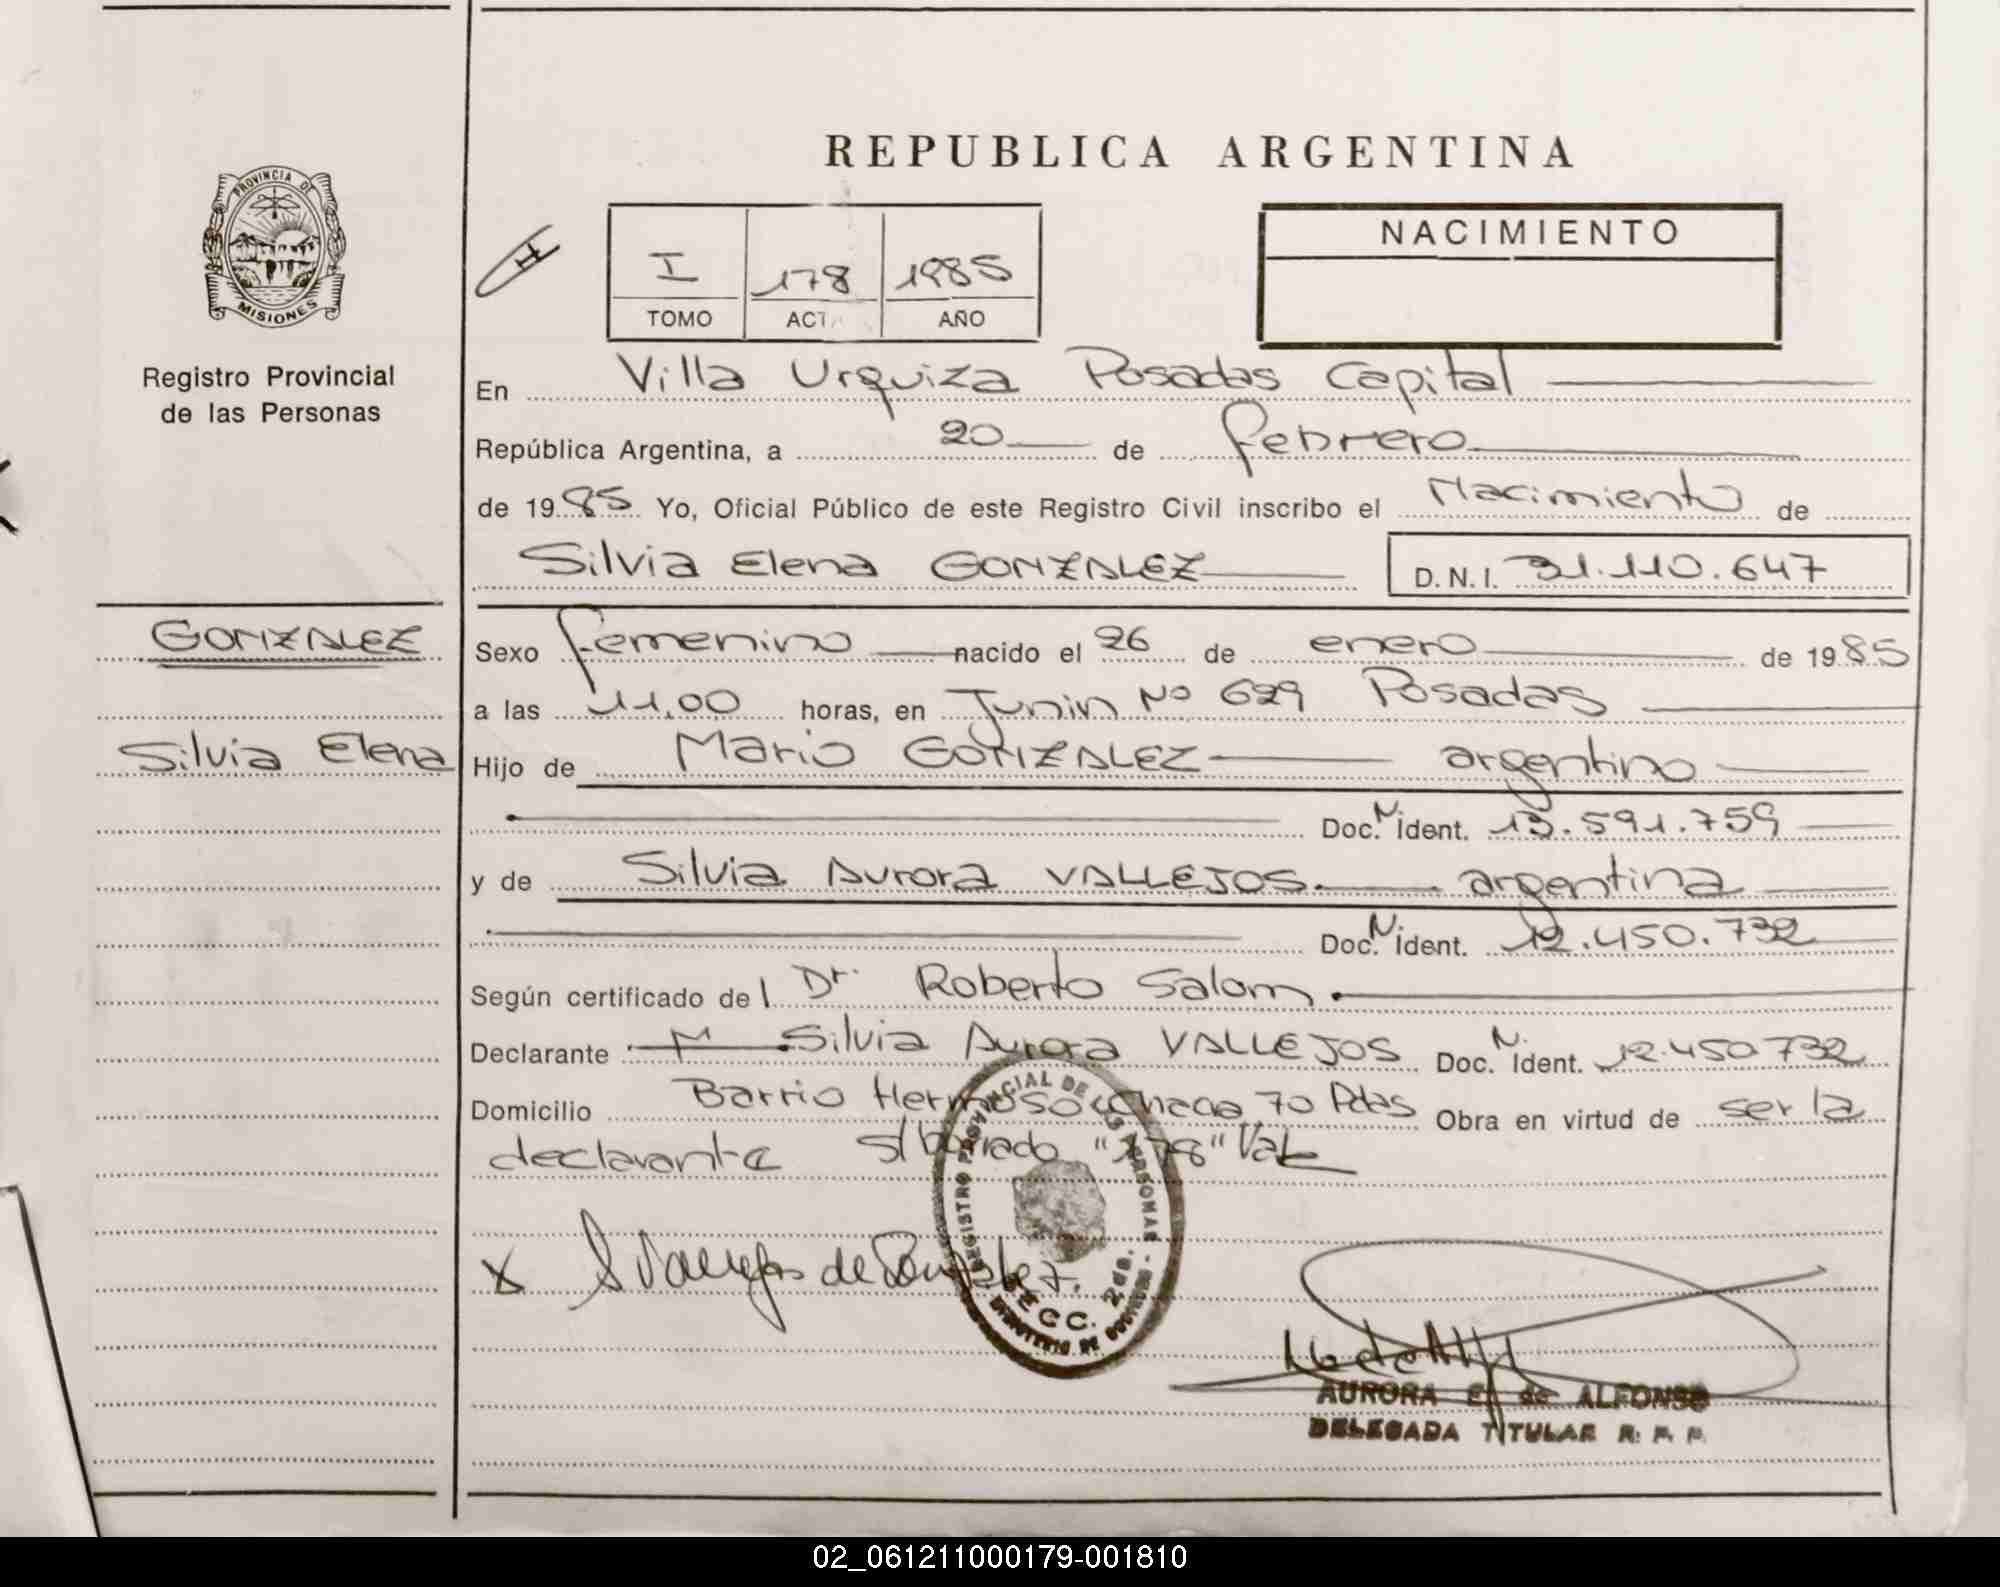 REPUBLICA ARGENTINA
PROVINCIA DE
MISIONES
Registro Provincial
de las Personas
I 178 1985
TOMO ACTA AÑO
NACIMIENTO
En Villa Urquiza Posadas Capital
República Argentina, a 20 de febrero
de 1985 Yo, Oficial Público de este Registro Civil inscribo el Nacimiento de
Silvia Elena GONZALEZ D.N.I. 31.110.647
GONZALEZ
Silvia Elena
Sexo femenino nacido el 26 de enero de 1985
a las 11,00 horas, en Junin Nº 629 Posadas
Hijo de Mario GONZALEZ argentino
Doc. N. ident. 13.591.759
y de Silvia Aurora VALLEJOS argentina
Doc. N. ident. 12.450.732
Según certificado del Dr. Roberto Salom
Declarante Silvia Aurora VALLEJOS Doc. N. ident. 12.450.732
Domicilio Barrio Hermoso Chacra 70 Pdas Obra en virtud de ser la
declarante s/borrado "178" Vale
x S Vallejos de González.
REGISTRO PROVINCIAL DE LAS PERSONAS
SECC. 2da.
MINISTERIO DE GOBIERNO
AURORA E. de ALFONSO
DELEGADA TITULAR R. P. P.
02_061211000179-001810